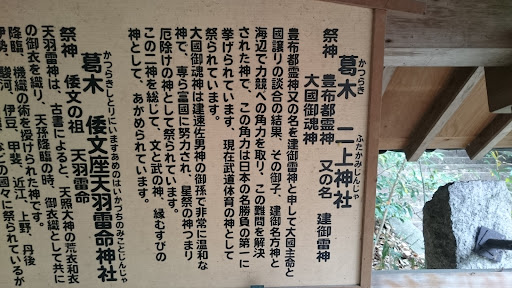 かつらぎ ふたかみじんじゃ
葛木 二上神社
祭神 豊布都霊神 又の名 建御雷神
大國御魂神
豊布都霊神又の名を建御雷神と申して大國主命と
國譲りの談合の結果、その御子、建御名方神と
海辺で力競への角力を取り、この難問を解決
された神で、この角力は日本の名勝負の第一に
挙げられています、現在武道体育の神として
祭られています。
大國御魂神は建速佐男神の御孫で非常に温和な
神で、専ら富國に努力され、星祭の神つまり
厄除けの神として祭られています。
この二神を総じて、文と武の神、縁むすびの
神として、あがめられています。
かつらきしとりにいますあめのはいかつちのみことじんじゃ
葛木 倭文座天羽雷命神社
祭神 倭文の祖 天羽雷命
天羽雷神は、古書によると、天照大神の荒衣和衣
の御衣を織り、天孫降臨の時、御衣織として共に
降臨、機織の術を授けられた神です。
伊勢、駿河、伊豆、甲斐、近江、上野、丹後
などの国々に祭られているが